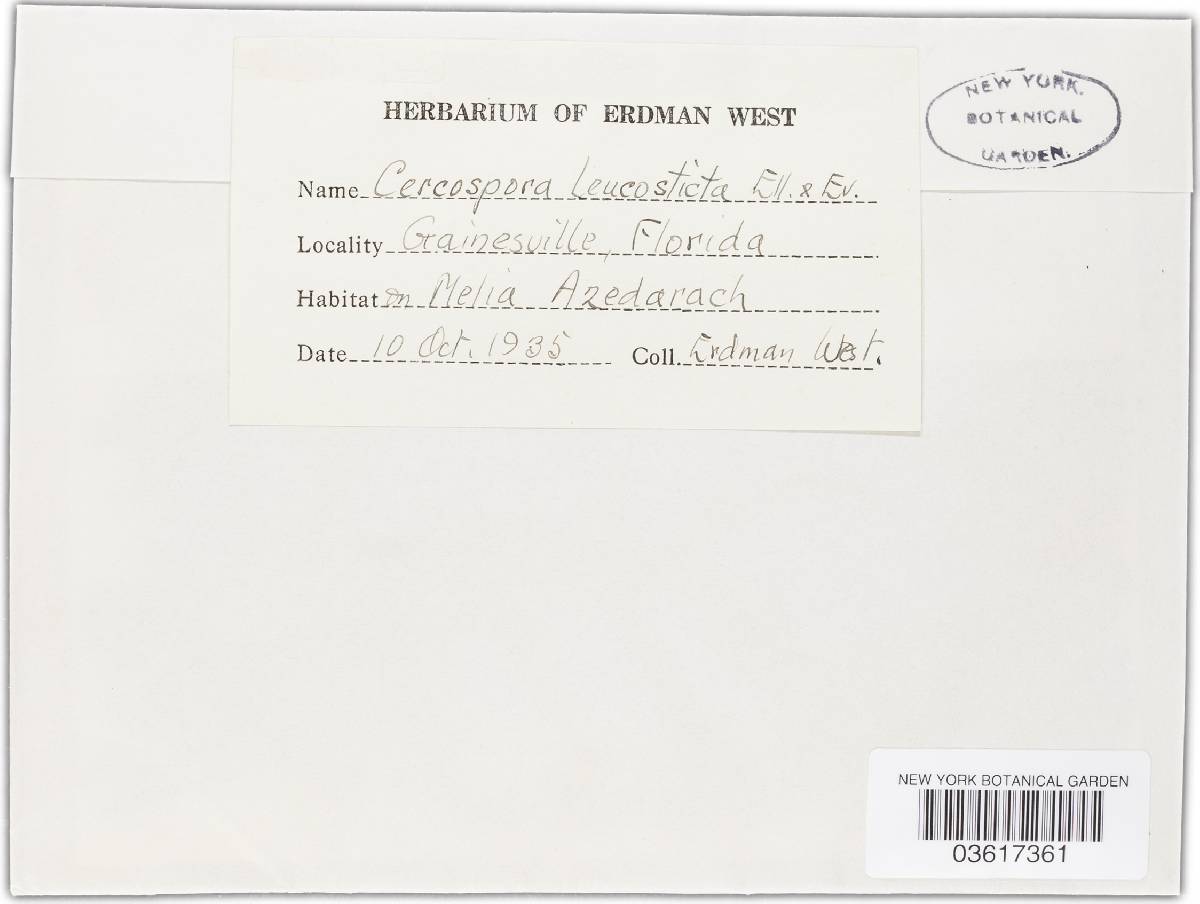 HERBARIUM OF ERDMAN WEST
Name Cercospora leucosticta Ell. & Ev.
Locality Gainesville, Florida
Habitat on Melia Azedarach
Date 10 Oct. 1935 Coll. Erdman West.
NEW YORK
BOTANICAL
GARDEN.
NEW YORK BOTANICAL GARDEN
03617361